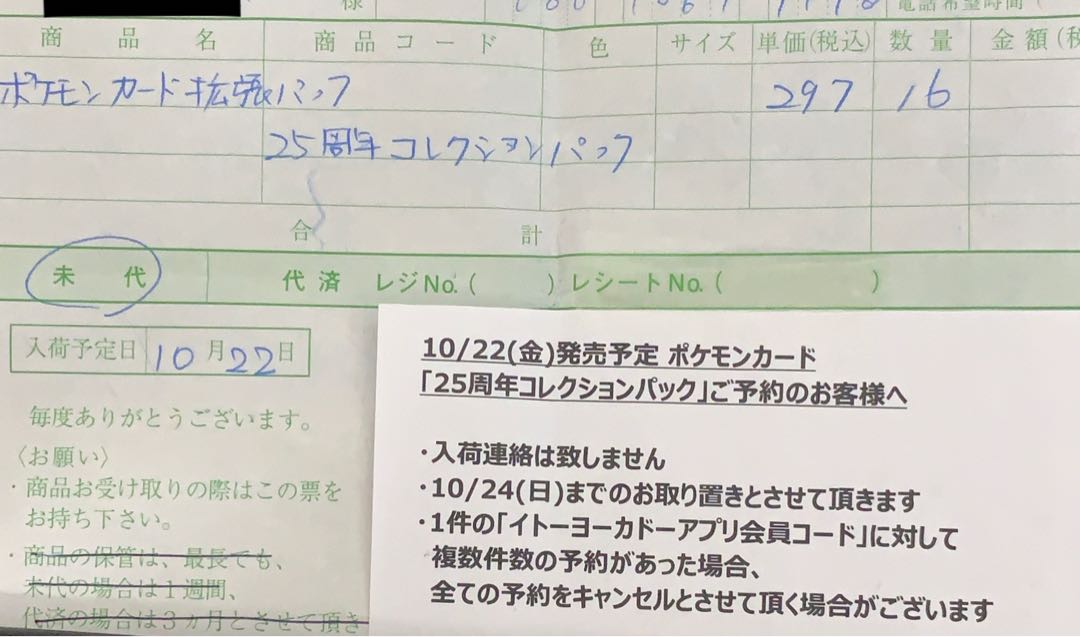 様 電話希望時間(
商品名 商品コード 色 サイズ 単価(税込) 数量 金額(税
ポケモンカード拡張パック 297 16
25周年コレクションパック
合計
未代 代済 レジNo.( ) レシートNo.( )
入荷予定日 10月22日
毎度ありがとうございます。
〈お願い〉
・商品お受け取りの際はこの票を
お持ち下さい。
・商品の保管は、最長でも、
未代の場合は1週間、
代済の場合は3ヵ月とさせて頂き
10/22(金)発売予定 ポケモンカード
「25周年コレクションパック」ご予約のお客様へ
・入荷連絡は致しません
・10/24(日)までのお取り置きとさせて頂きます
・1件の「イトーヨーカドーアプリ会員コード」に対して
複数件数の予約があった場合、
全ての予約をキャンセルとさせて頂く場合がございます